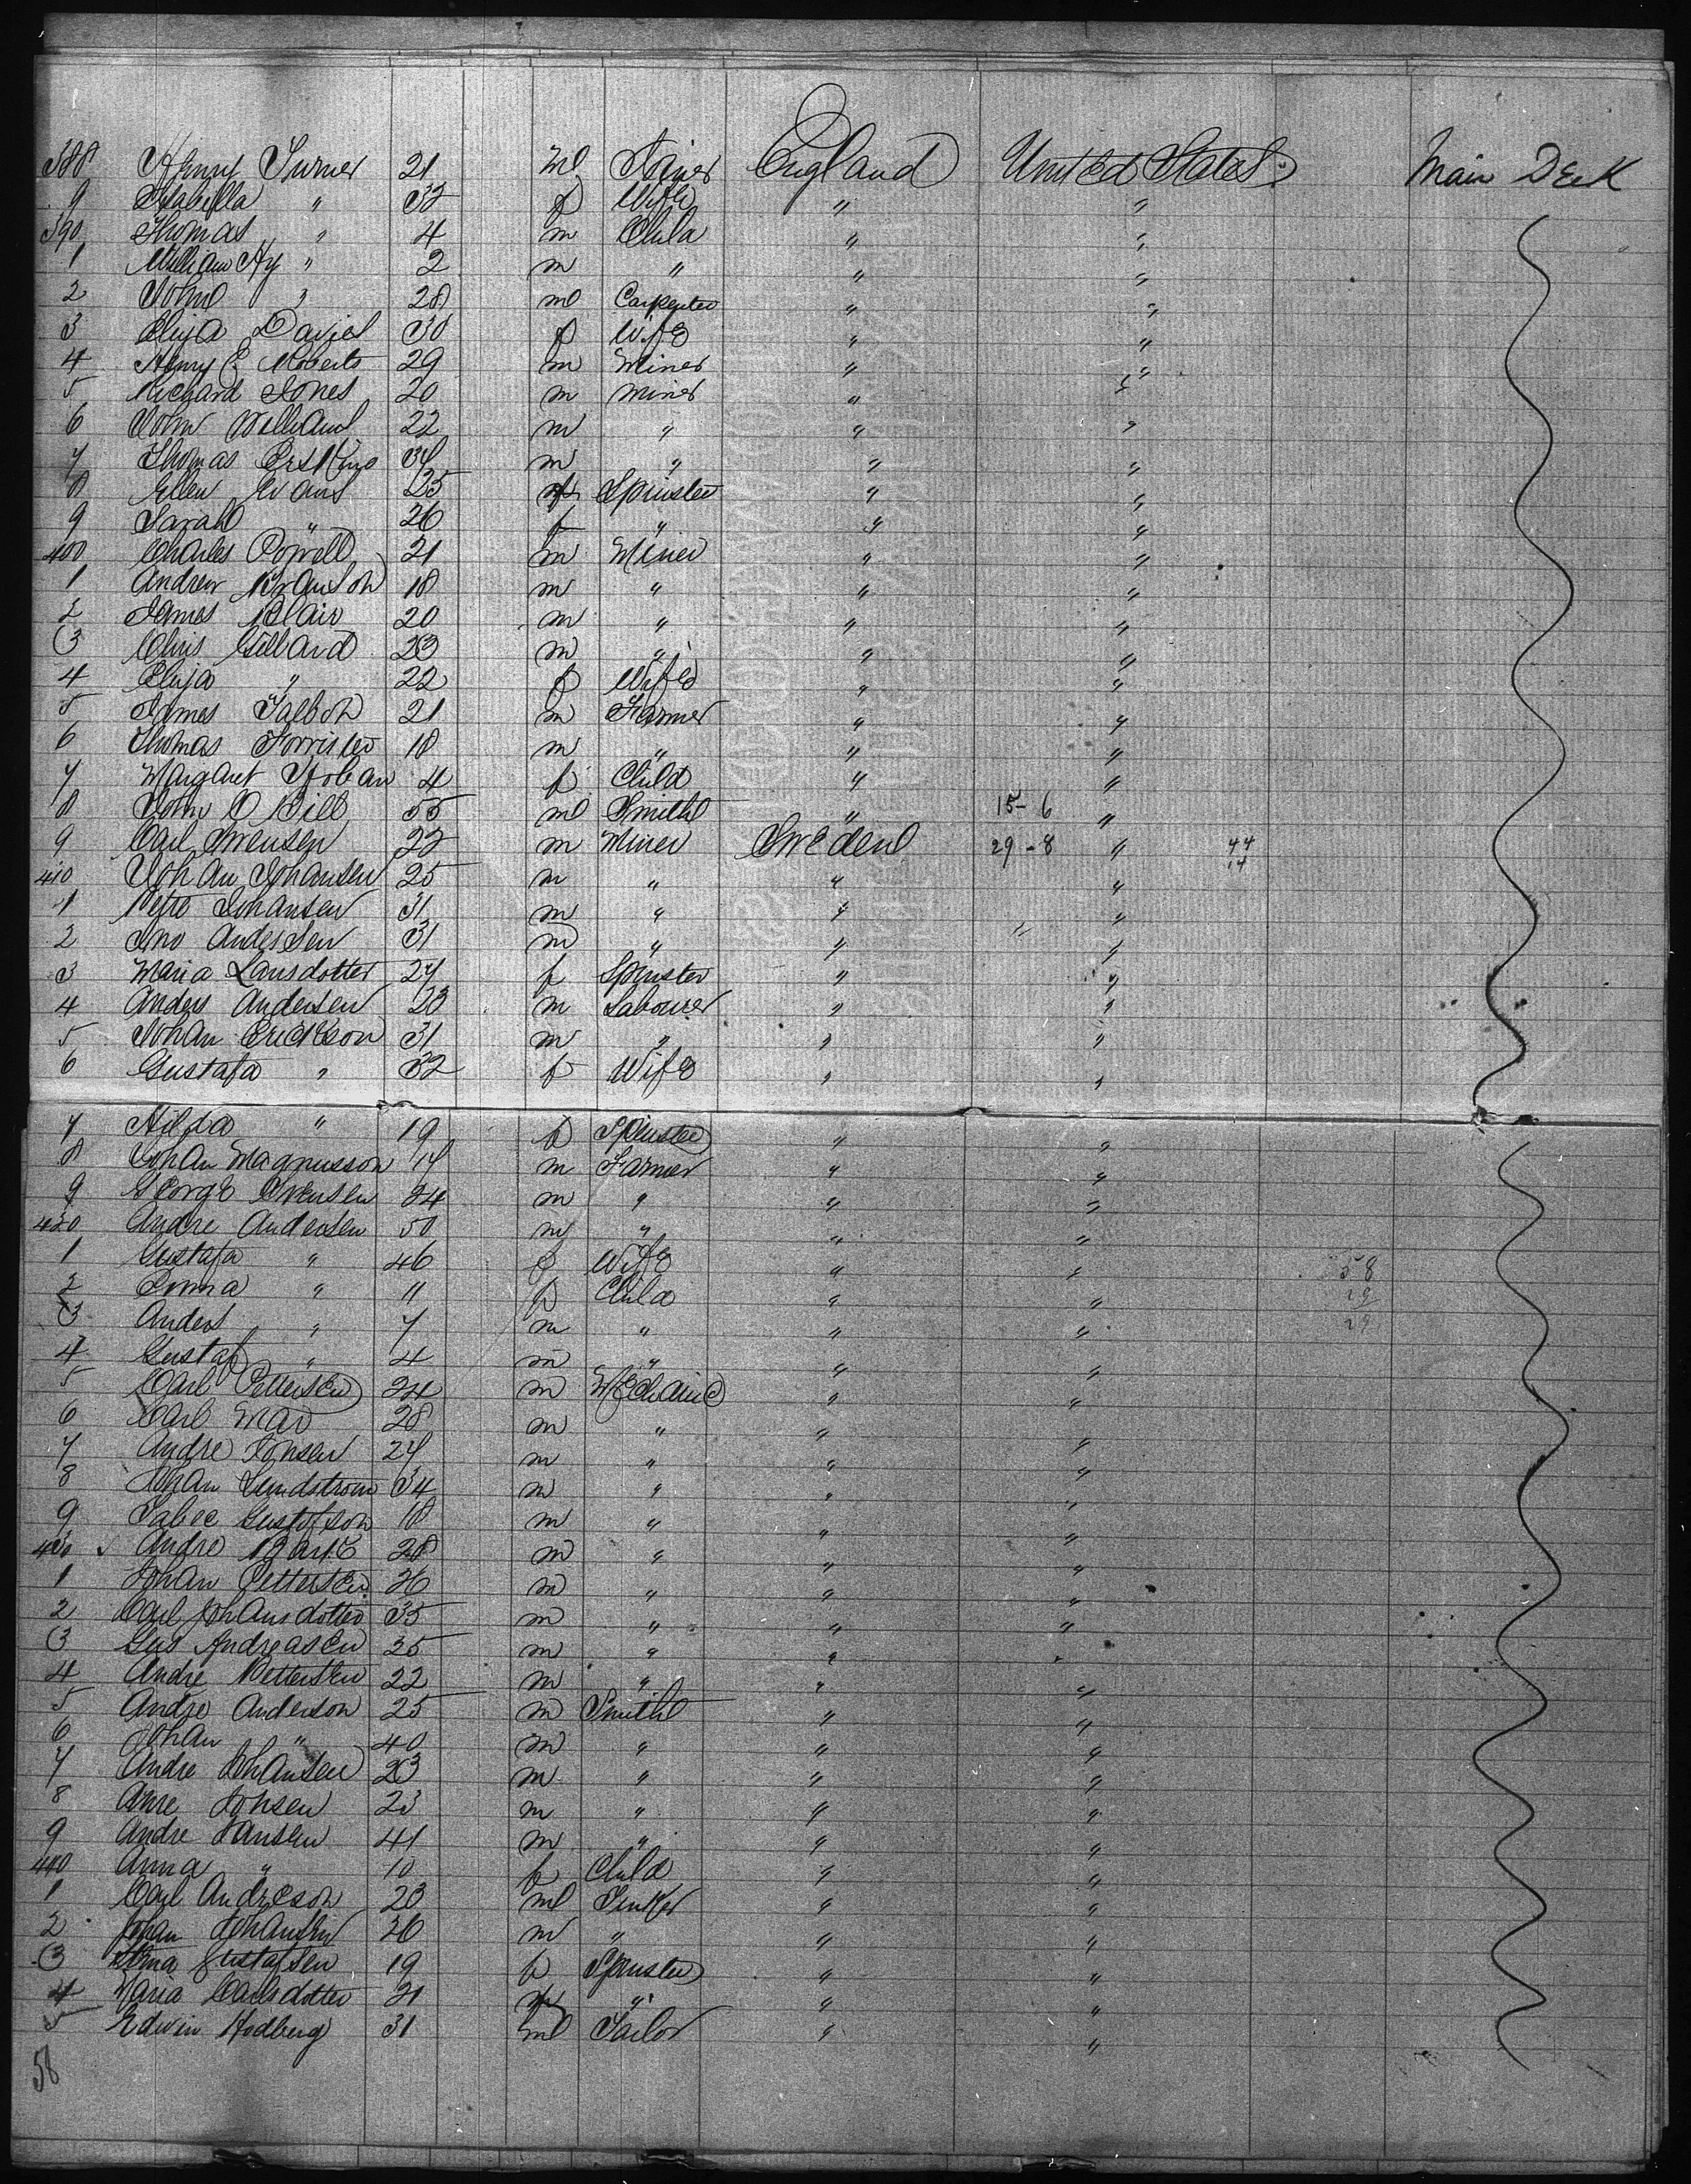 388 Henry Turner 21 m Joiner England United States Main Deck
9 Isabella " 32 f Wife " "
390 Thomas " 4 m Child " "
1 William Hy " 2 m " " "
2 John " 28 m Carpenter " "
3 Eliza Davies 30 f Wife " "
4 Henry E. Roberts 29 m Miner " "
5 Richard Jones 20 m Miner " "
6 John Williams 22 m " " "
7 Thomas Erskine 34 m " " "
8 Ellen Evans 25 f Spinster " "
9 Sarah " 26 f " " "
400 Charles Powell 21 m Miner " "
1 Andrew Branson 18 m " " "
2 James Blair 20 m " " "
3 Chris Gilbard 23 m " " "
4 Eliza " 22 f Wife " "
5 James Talbot 21 m Farmer " "
6 Thomas Forrister 18 m " " "
7 Margaret 4 f Child " "
8 John O Bill 55 m Smith " 15-6 "
9 Carl Svensen 22 m Miner Sweden 29-8 " 44
14
410 Johan Johansen 25 m " " "
1 Petre Johansen 31 m " " "
2 Jno Andersen 31 m " " "
3 Maria Larsdotter 27 f Spinster " "
4 Anders Andersen 23 m Labourer " "
5 Johan Erickson 31 m " " "
6 Gustafa " 32 f Wife " "
7 Hilda " 19 f Spinster " "
8 Johan Magnusson 17 m Farmer " "
9 George Svensen 24 m " " "
420 Andre Andersen 50 m " " "
1 Gustafa " 46 f Wife " " 58
2 Emma " 11 f Child " " 29
3 Anders " 7 m " " " 29
4 Gustaf " 4 m " " "
5 Carl Pettersen 24 m Mechanic " "
6 Carl 28 m " " "
7 Andre Jonsen 27 m " " "
8 Johan Lundstrom 34 m " " "
9 Gustofson 18 m " " "
430 Andre 28 m " " "
1 Johan Pettersen 26 m " " "
2 Carl Johansdotter 35 m " " "
3 Gus Andreasen 25 m " " "
4 Andre Pettersen 22 m " " "
5 Andre Anderson 25 m Smith " "
6 Johan " 40 m " " "
7 Andre Johansen 23 m " " "
8 Arne Johsen 23 m " " "
9 Andre Hansen 41 m " " "
440 Anna " 10 f Child " "
1 Carl Andreson 23 m Tinker " "
2 Johan Johansen 26 m " " "
3 Gustafsen 19 f Spinster " "
4 Maria Carlsdotter 21 f " " "
5 Edwin Hedberg 31 m Tailor " "
58